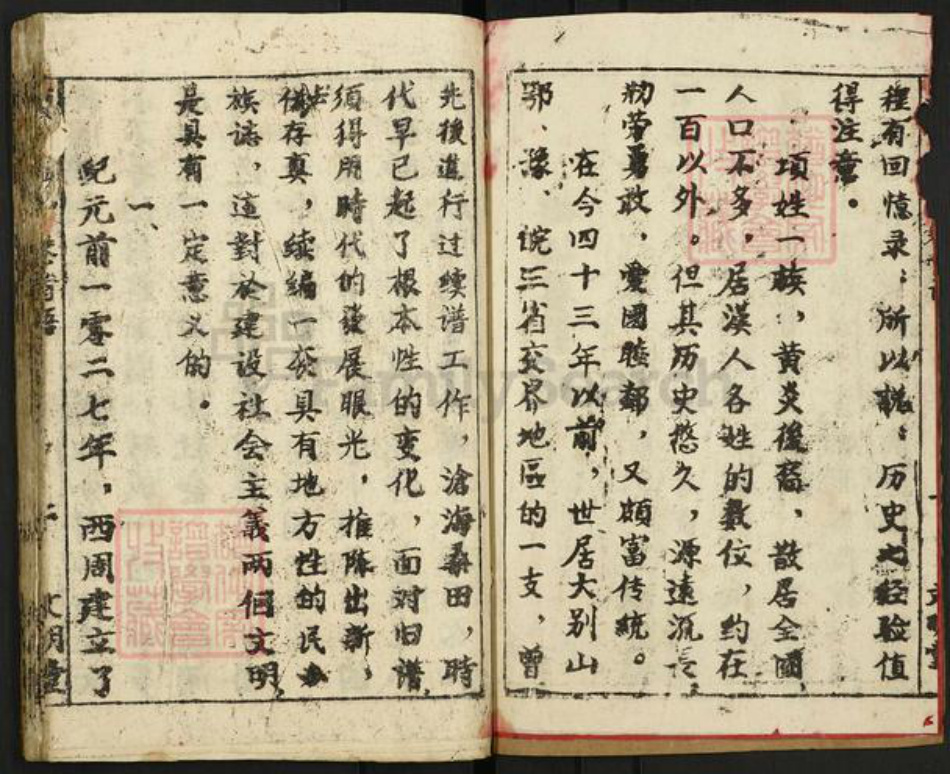 裡有回憶录；所以説：历史之经验值
得注意。
项姓一族，黄炎後裔，散居全國，
人口不多，居漢人各姓的数位，约在
一百以外。但其历史悠久，源遠流长，
勤劳勇敢，愛國睦鄰，又頗富传統。
在今四十三年以前，世居大别山
鄂、豫、皖三省交界地區的一支，曾
先後進行过续谱工作，滄海桑田，時
代早已起了根本性的变化，面对旧谱，
须得用時代的發展眼光，推陈出新，
去 存真，续编一套具有地方性的民
族誌，這對於建设社会主義两個文明，
是具有一定意义的。
一、
紀元前一零二七年，西周建立了
卷首語
二
文明堂
FamilySearch